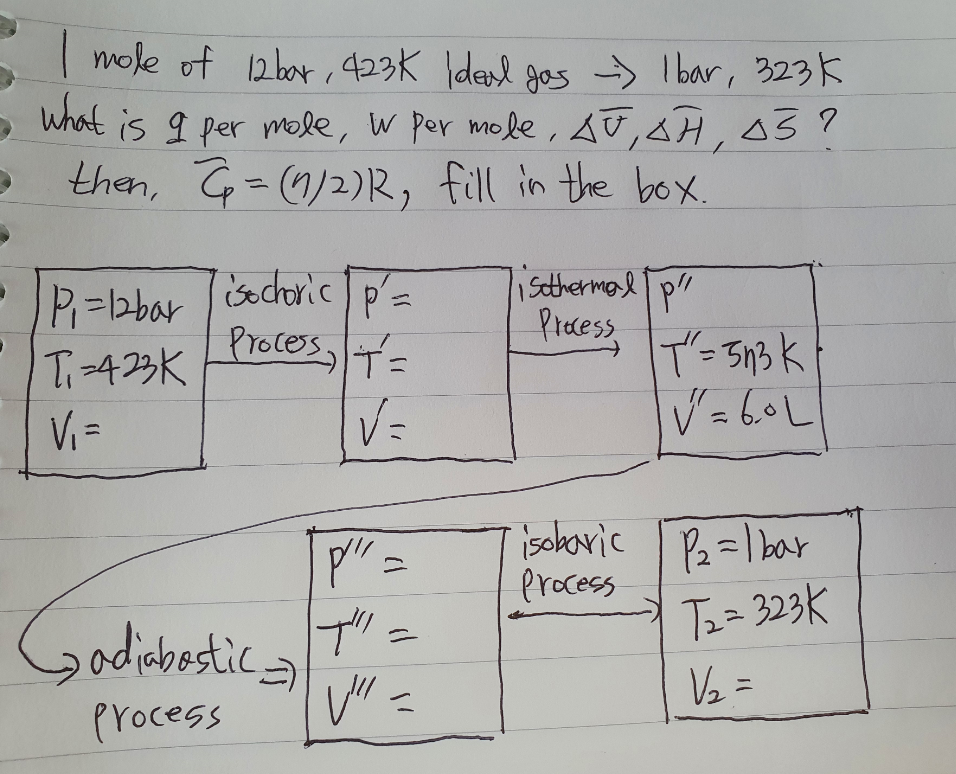 1 mole of 12bar, 423K Ideal gas → 1bar, 323K
What is q per mole, w per mole, ΔU̅, ΔH̅, ΔS̅ ?
then, C̅p = (7/2)R, fill in the box.
P₁=12bar
T₁=423K
V₁=
isochoric
process
P'=
T'=
V=
isothermal
Process
P''
T''=573K
V''=6.0L
adiabastic
process
P'''=
T'''=
V'''=
isobaric
process
P₂=1bar
T₂=323K
V₂=